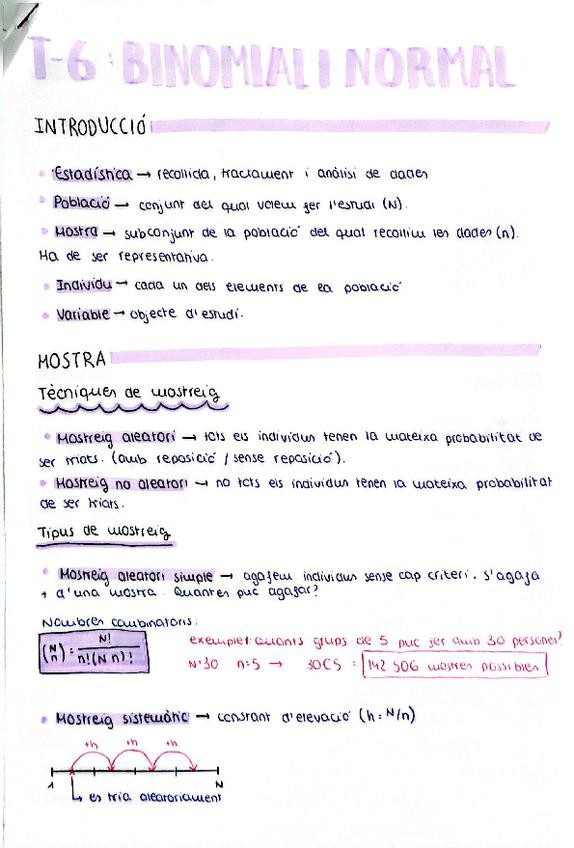 T-6: BINOMIAL I NORMAL
INTRODUCCIÓ
• Estadística → recollida, tractament i anàlisi de dades
• Població → conjunt del qual volem fer l'estudi (N).
• Mostra → subconjunt de la població del qual recollim les dades (n).
Ha de ser representativa.
• Individu → cada un dels elements de la població
• Variable → objecte d'estudi.
MOSTRA
Tècniques de mostreig
• Mostreig aleatori → tots els individus tenen la mateixa probabilitat de
ser triats. (amb reposició / sense reposició).
• Mostreig no aleatori → no tots els individus tenen la mateixa probabilitat
de ser triats.
Tipus de mostreig
• Mostreig aleatori simple → agafem individus sense cap criteri. S'agafa
+ d'una mostra. Quantes puc agafar?
Nombres combinatoris:
(N n) = N! / n!(N-n)!
exemple: quants grups de 5 puc fer amb 30 persones?
N=30 n=5 → 30C5 = 142 506 mostres possibles
• Mostreig sistemàtic → constant d'elevació (h = N/n)
+h +h +h
1 N
↳ es tria aleatoriament